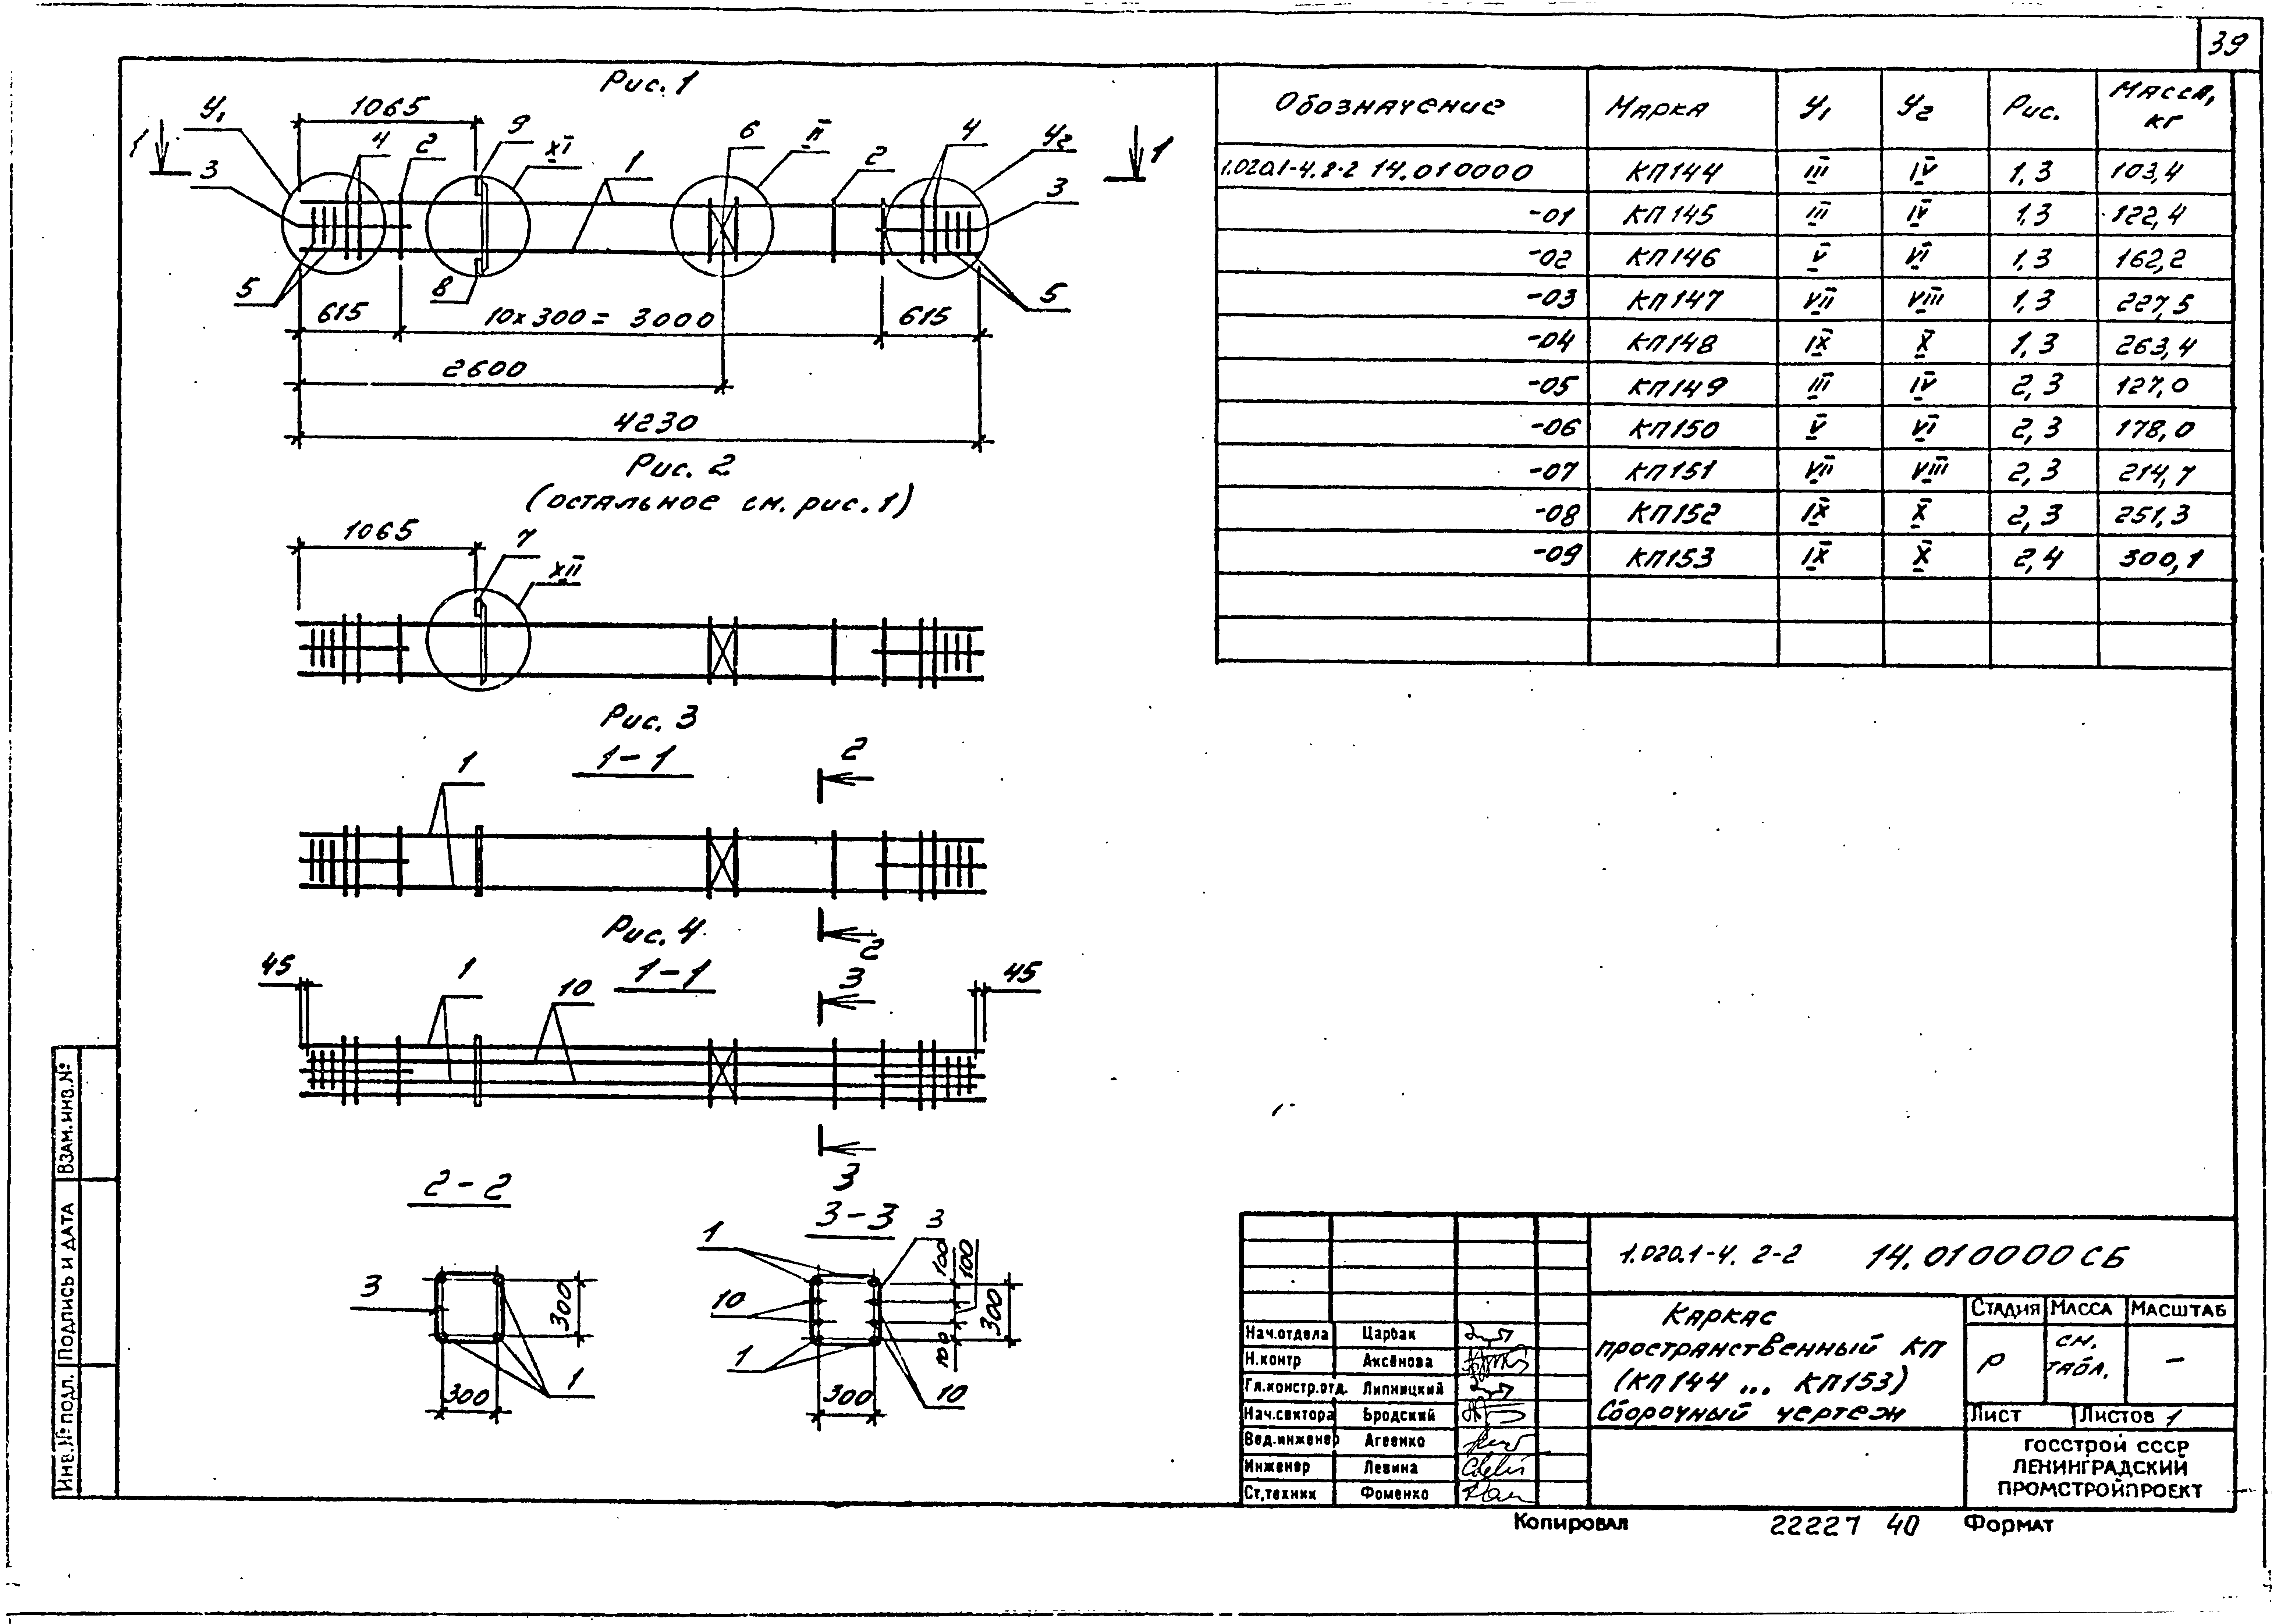 39
Рис. 1
У₁ 1065 9 XI 6 II 1 4 2 4 У₂
1 3 2 1 3 1
5 8 5
615 10×300 = 3000 615
2600
4230
Рис. 2
(остальное см. рис. 1)
1065 7 XII
Рис. 3
1-1
1 2
2
Рис. 4
1-1
45 1 10 3 45
3
2-2
3 300
300 1
3-3
1 3 100 100
10 300
1 100
300 10
Обозначение Марка У₁ У₂ Рис. Масса, кг
1.020.1-4. 2-2 14.010000 КП144 III IV 1,3 103,4
-01 КП145 III IV 1,3 122,4
-02 КП146 V VI 1,3 162,2
-03 КП147 VII VIII 1,3 227,5
-04 КП148 IX X 1,3 263,4
-05 КП149 III IV 2,3 127,0
-06 КП150 V VI 2,3 178,0
-07 КП151 VII VIII 2,3 214,7
-08 КП152 IX X 2,3 251,3
-09 КП153 IX X 2,4 300,1
Взам. инв. №
Подпись и дата
Инв. № подл.
1.020.1-4. 2-2 14.010000 СБ
Каркас
пространственный КП
(КП144 ... КП153)
Сборочный чертеж
Стадия Масса Масштаб
Р см. табл. –
Лист Листов 1
ГОССТРОЙ СССР
ЛЕНИНГРАДСКИЙ
ПРОМСТРОЙПРОЕКТ
Нач.отдела Царбак
Н.контр Аксёнова
Гл.констр.отд. Липницкий
Нач.сектора Бродский
Вед.инженер Агеенко
Инженер Левина
Ст.техник Фоменко
Копировал 22227 40 Формат